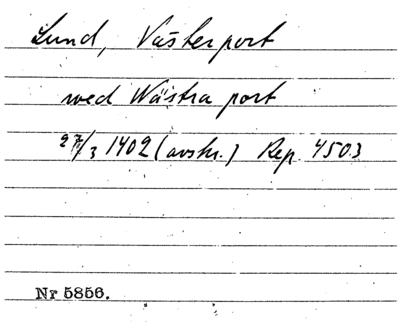 Lund, Västerport
wed Wästra port
27/3 1402 (avskr.) Rep. 4503
Nr 5856.